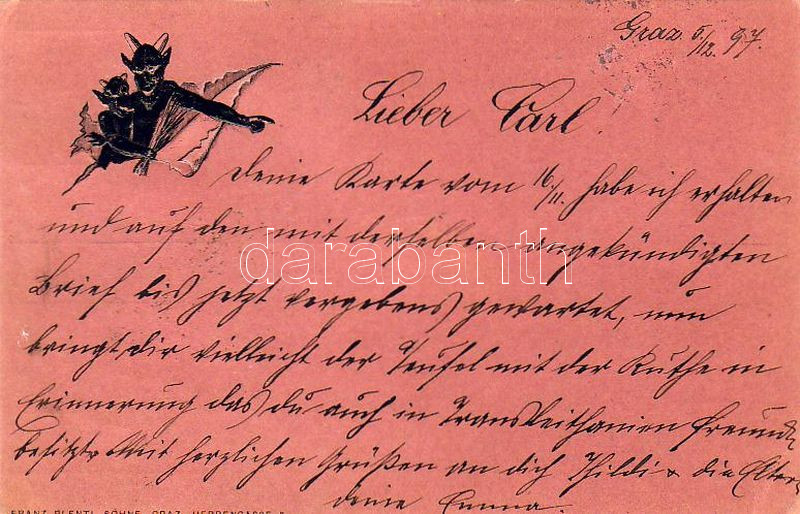 Graz 5/12. 97.
Lieber Carl!
Deine Karte vom 16/11. habe ich erhalten
und auf den mit derselben angekündigten
Brief bis jetzt vergebens gewartet, nun
bringt dir vielleicht der Teufel mit der Ruthe in
Erinnerung das du auch in Transleithanien Freunde
besitzt. Mit herzlichen Grüßen an dich Thildi & die Eltern
deine Emma.
darabanth
FRANZ PLENTL SÖHNE, GRAZ, HERRENGASSE